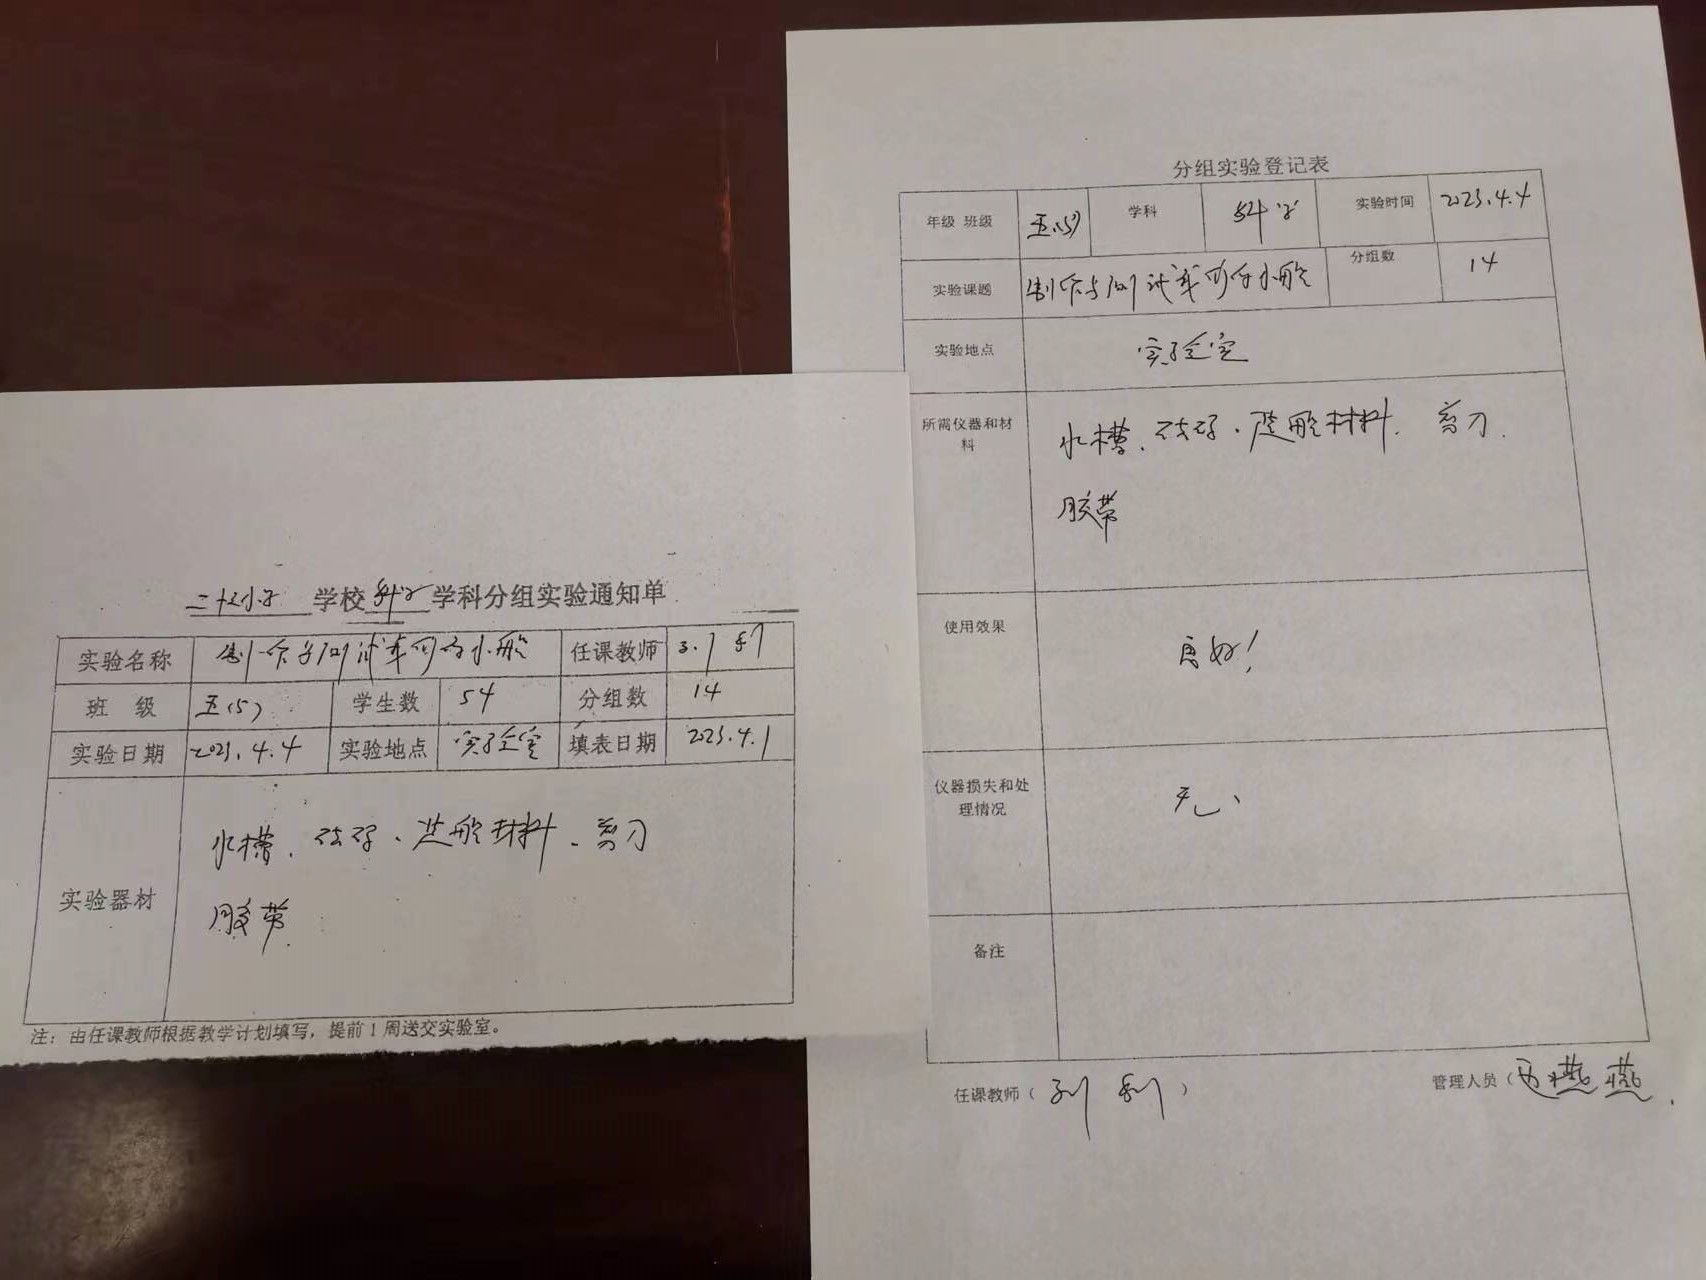 学校 科学 学科分组实验通知单
实验名称 制作与测试我们的小船 任课教师 刘利
班 级 五(5) 学生数 54 分组数 14
实验日期 2023.4.4 实验地点 实验室 填表日期 2023.4.1
实验器材
水槽、砝码、造船材料、剪刀
胶带
注：由任课教师根据教学计划填写，提前1周送交实验室。
分组实验登记表
年级 班级 五(5) 学科 科学 实验时间 2023.4.4
实验课题 制作与测试我们的小船 分组数 14
实验地点 实验室
所需仪器和材
料
水槽、砝码、造船材料、剪刀、
胶带
使用效果 良好！
仪器损失和处
理情况
无、
备注
任课教师（刘利） 管理人员（燕燕